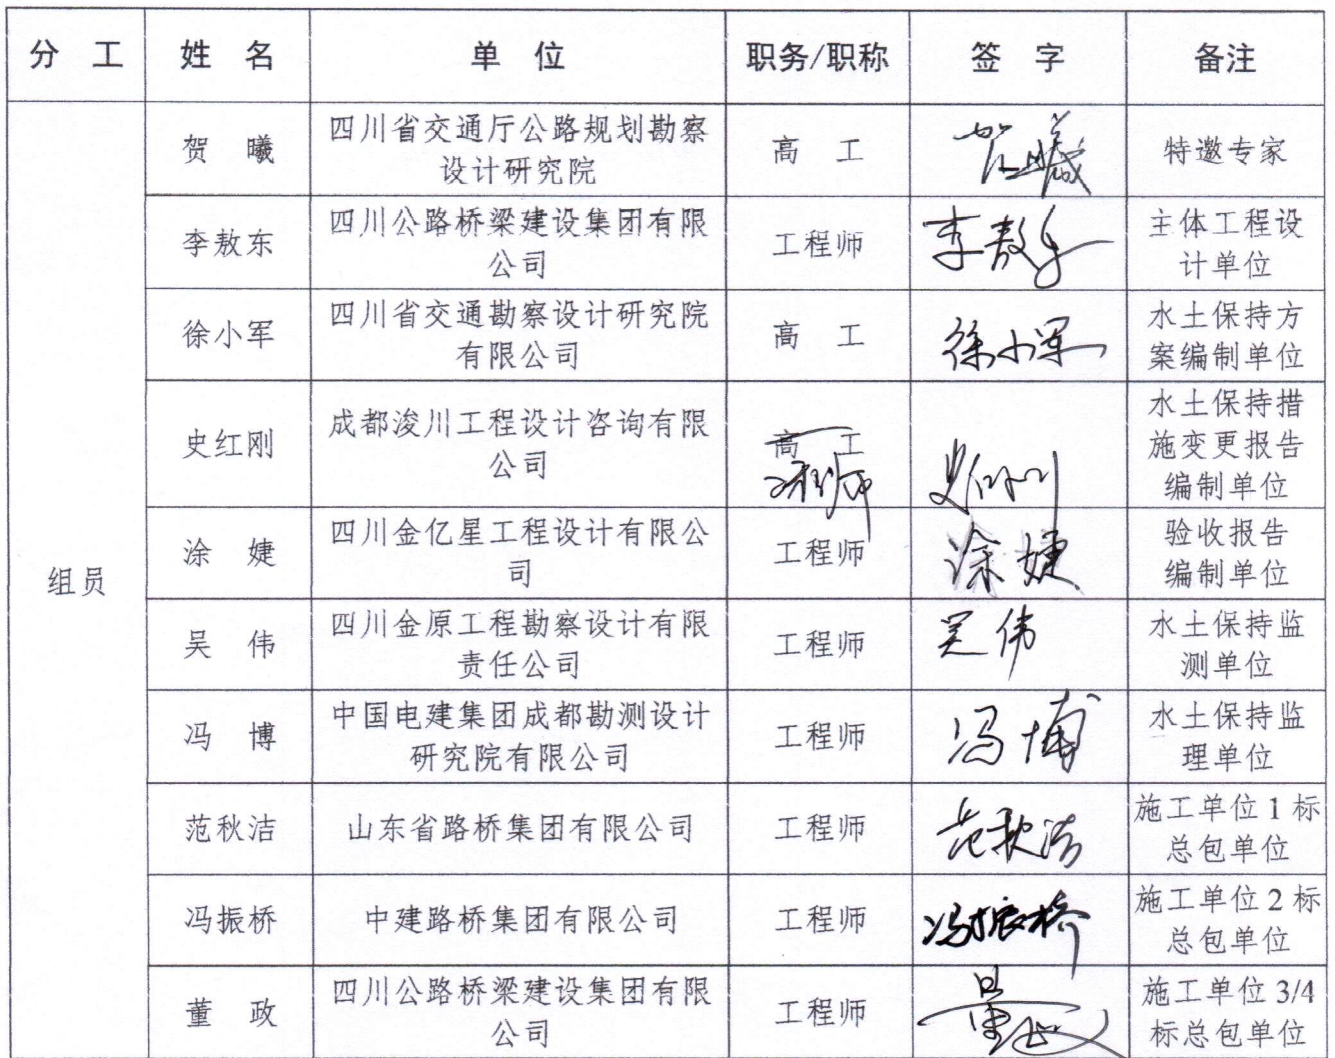 分 工 姓 名 单 位 职务/职称 签 字 备注
组员
贺 曦 四川省交通厅公路规划勘察 高 工 贺曦 特邀专家
设计研究院
李敖东 四川公路桥梁建设集团有限 工程师 李敖东 主体工程设
公司 计单位
徐小军 四川省交通勘察设计研究院 高 工 徐小军 水土保持方
有限公司 案编制单位
史红刚 成都浚川工程设计咨询有限 高 工 史红刚 水土保持措
公司 工程师 施变更报告
编制单位
涂 婕 四川金亿星工程设计有限公 工程师 涂婕 验收报告
司 编制单位
吴 伟 四川金原工程勘察设计有限 工程师 吴伟 水土保持监
责任公司 测单位
冯 博 中国电建集团成都勘测设计 工程师 冯博 水土保持监
研究院有限公司 理单位
范秋洁 山东省路桥集团有限公司 工程师 范秋洁 施工单位1标
总包单位
冯振桥 中建路桥集团有限公司 工程师 冯振桥 施工单位2标
总包单位
董 政 四川公路桥梁建设集团有限 工程师 董政 施工单位3/4
公司 标总包单位